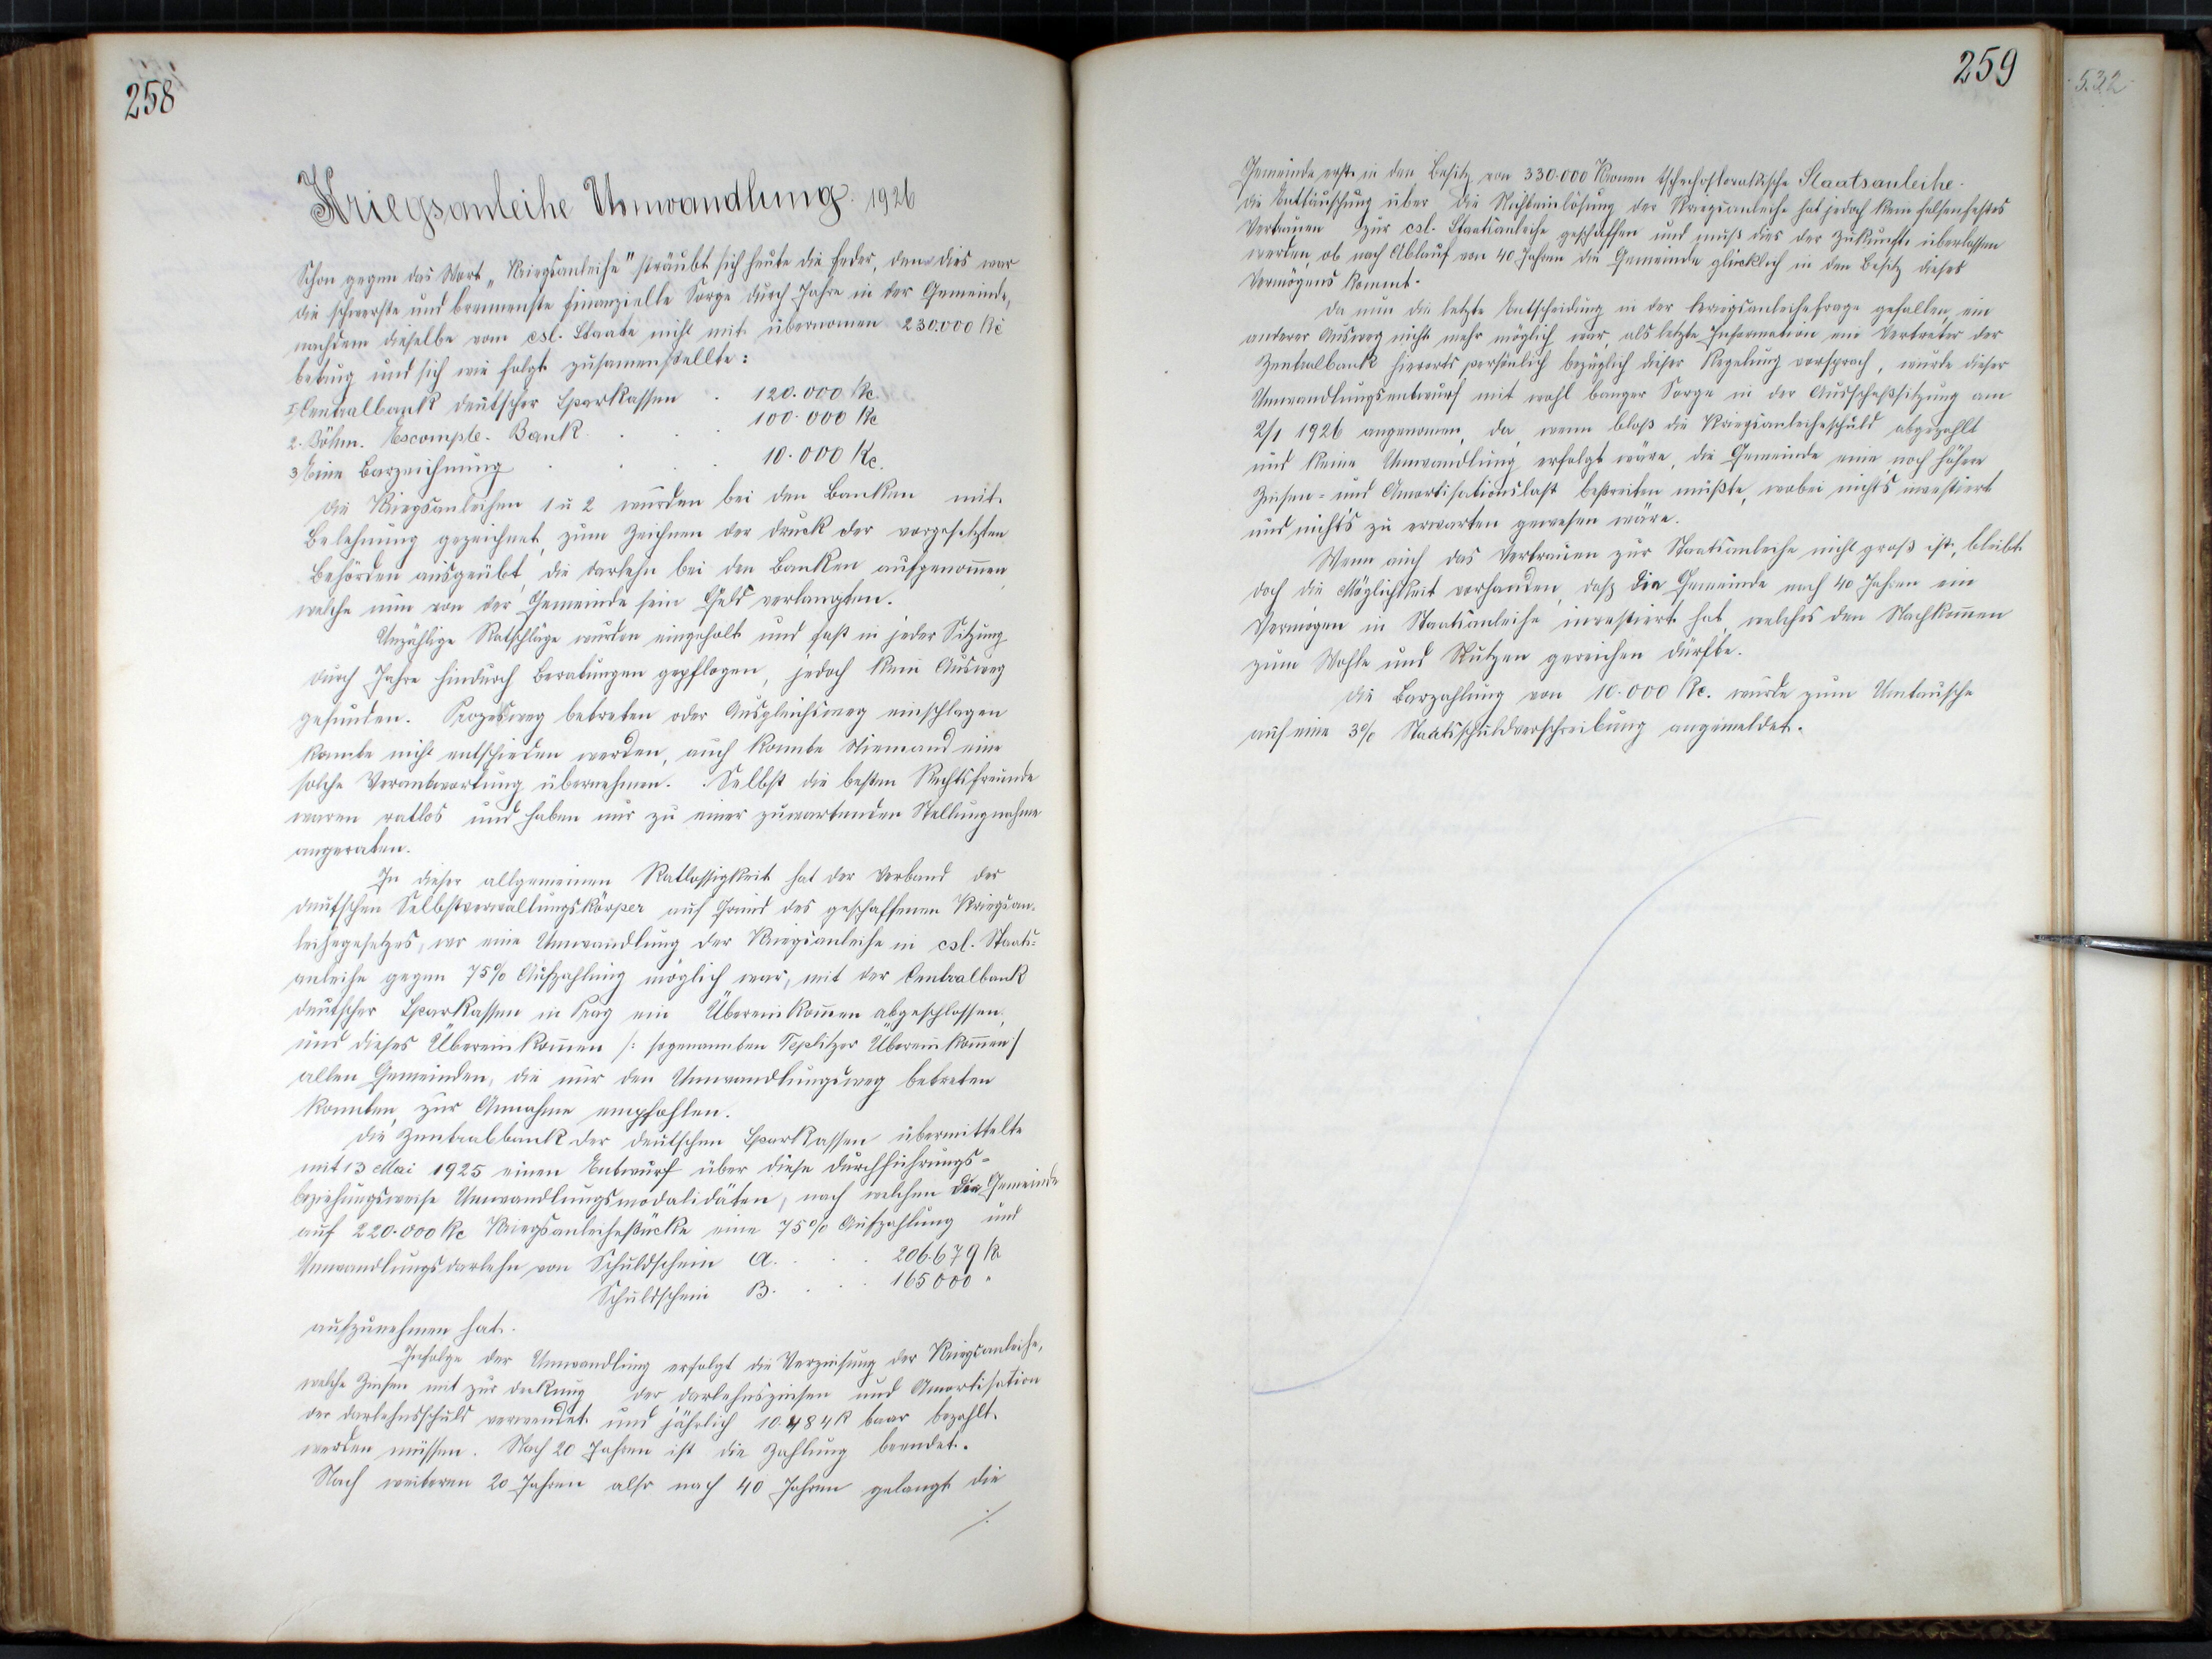 258
Kriegsanleihe Umwandlung. 1926
Schon gegen das Wort „Kriegsanleihe" sträubt sich heute die Feder, denn dies war
die schwerste und brennenste finanzielle Sorge durch Jahre in der Gemeinde,
nachdem dieselbe vom csl. Staate nicht mit übernomen 230.000 Kč
betrug und sich wie folgt zusamenstellte:
1. Centralbank deutscher Sparkassen . 120.000 Kc.
2. Böhm. Escompte-Bank . . . 100.000 Kc
3. Eine Barzeichnung . . . 10.000 Kc.
Die Kriegsanleihen 1 u 2 wurden bei den Banken mit
Belehnung gezeichnet, zum Zeichnen der Druck der vorgesetzten
Behörden ausgeübt, die Darlehn bei den Banken aufgenomen,
welche nun von der Gemeinde sein Geld verlangten.
Unzählige Ratschläge wurden eingeholt und fast in jeder Sitzung
durch Jahre hindurch Beratungen gepflogen, jedoch kein Ausweg
gefunden. Prozesweg betreten oder Ausgleichsweg einschlagen
konnte nicht entschieden werden, auch konnte Niemand eine
solche Verantwortung übernehmen. Selbst die besten Rechtsfreunde
waren ratlos und haben nur zu einer zuwartenden Stellungnahme
angeraten.
In dieser allgemeinen Ratlossigkeit hat der Verband der
deutschen Selbstverwaltungskörper auf Grund des geschaffenen Kriegsan-
leihegesetzes, wo eine Umwandlung der Kriegsanleihe in csl. Staats-
anleihe gegen 75% Aufzahlung möglich war, mit der Centralbank
deutscher Sparkassen in Prag ein Übereinkomen abgeschlossen,
und dieses Übereinkomen /: sogenannten Teplitzer Übereinkomen/
allen Gemeinden, die nur den Umwandlungsweg betreten
konnten, zur Annahme empfohlen.
Die Zentralbank der deutschen Sparkassen übermittelte
mit 13 Mai 1925 einen Entwurf über diese Durchführungs-
beziehungsweise Umwandlungsmodalidäten, nach welchen die Gemeinde
auf 220.000 Kc Kriegsanleihestücke eine 75% Aufzahlung und
Umwandlungsdarlehn von Schuldschein A. . . . 206.679 K
Schuldschein B. . . . 165000 "
aufzunehmen hat.
Infolge der Umwandlung erfolgt die Verzinsung der Kriegsanleihe,
welche Zinsen mit zur Deckung der Darlehnszinsen und Amortisation
der Darlehnsschuld verwendet und jährlich 10.484 K baar bezahlt
werden müssen. Nach 20 Jahren ist die Zahlung beendet.
Nach weiteren 20 Jahren also nach 40 Jahren gelangt die
./.
259
Gemeinde erst in den Besitz von 330.000 Kronen tschechoslovakische Staatsanleihe.
Die Enttäuschung über die Nichteinlösung der Kriegsanleihe hat jedoch kein felsenfestes
Vertrauen zur csl. Staatsanleihe geschaffen und muß dies der Zukunft überlassen
werden, ob nach Ablauf von 40 Jahren die Gemeinde glücklich in den Besitz dieses
Vermögens kommt.
Da nun die letzte Entscheidung in der Kriegsanleihefrage gefallen, ein
anderer Ausweg nicht mehr möglich war, als letzte Information ein Vertreter der
Zentralbank hierorts persönlich bezüglich dieser Regelung vorsprach, wurde dieser
Umwandlungsentwurf mit wohl banger Sorge in der Ausschußsitzung am
2/1 1926 angenomen, da, wenn bloß die Kriegsanleiheschuld abgezahlt
und keine Umwandlung erfolgt wäre, die Gemeinde eine noch höhere
Zinsen- und Amortisationslast bestreiten müßte, wobei nichts investiert
und nichts zu erwarten gewesen wäre.
Wenn auch das Vertrauen zur Staatsanleihe nicht groß ist, bleibt
doch die Möglichkeit vorhanden, daß die Gemeinde nach 40 Jahren ein
Vermögen in Staatsanleihe investiert hat, welches den Nachkomen
zum Wohle und Nutzen gereichen dürfte.
Die Barzahlung von 10.000 Kc. wurde zum Umtausche
auf eine 3% Staatsschuldverschreibung angemeldet.
532